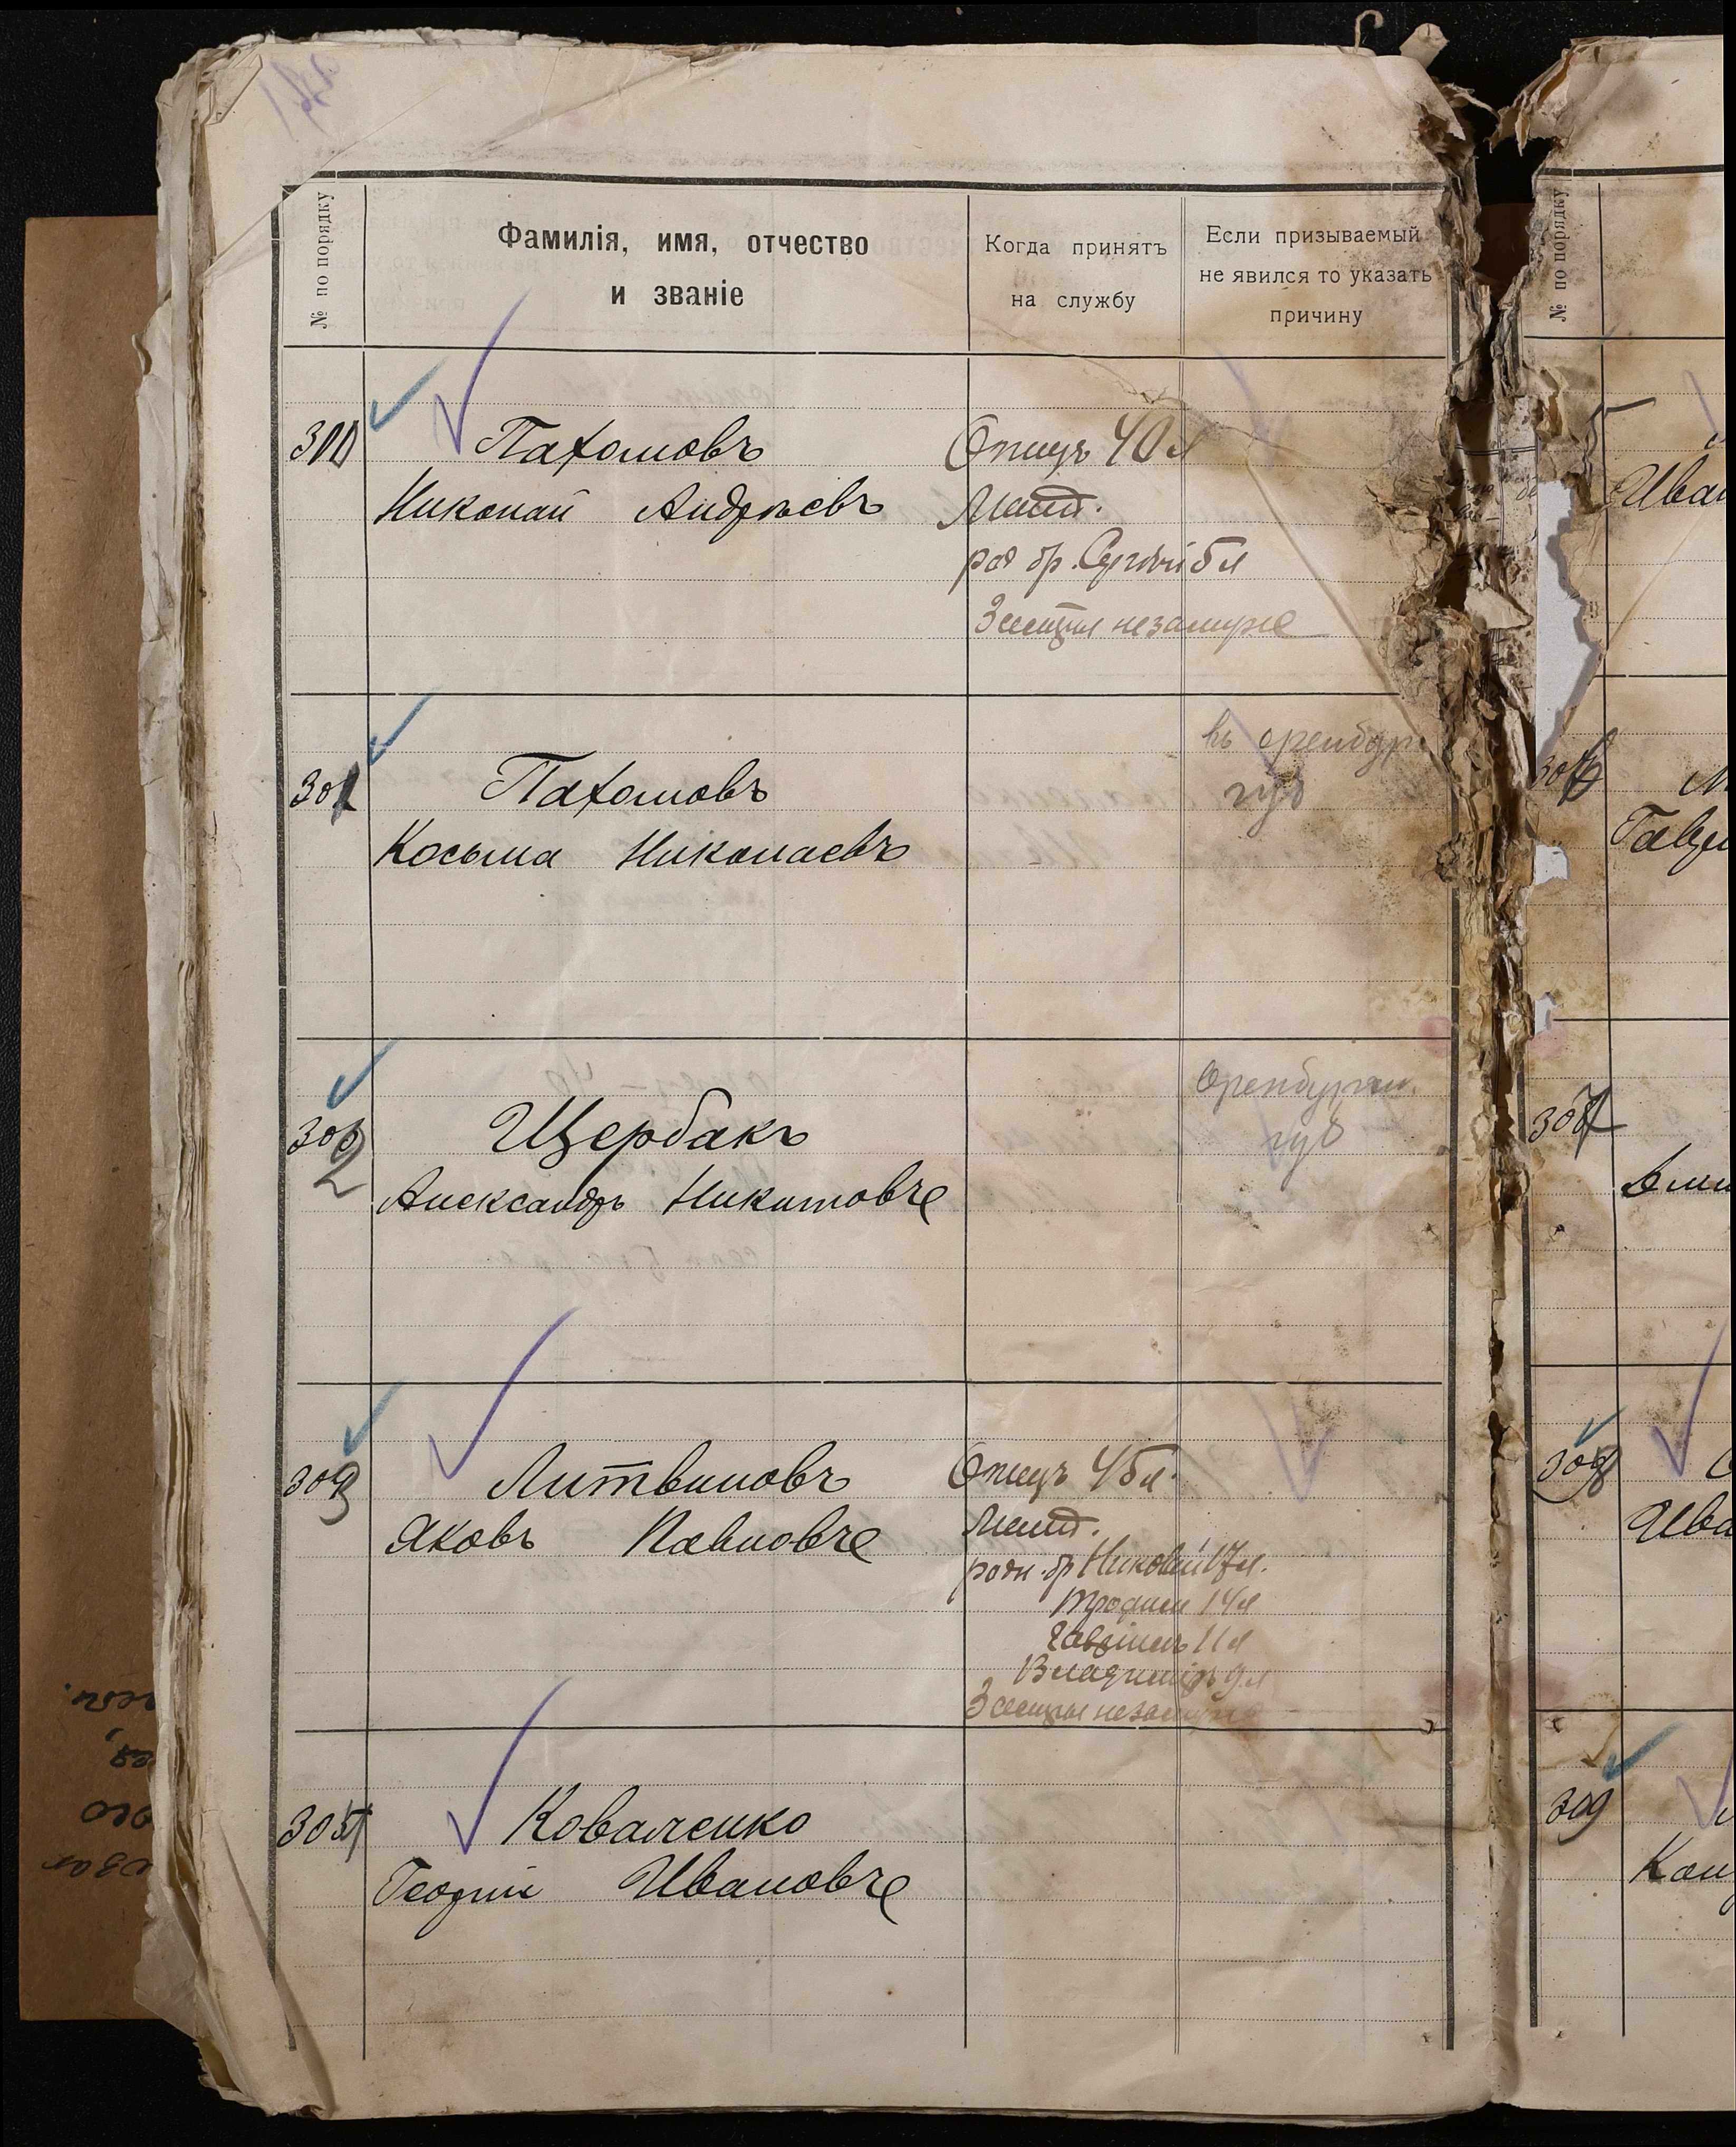 № по порядку
Фамилія, имя, отчество
и званіе
Когда принятъ
на службу
Если призываемый
не явился то указать
причину
Пахомовъ
Николай Андреевъ
Отецъ 40 л
Мать.
род бр. Сергѣй 5 л
3 сестры незамуже
301
Пахомовъ
Косьма Николаевъ
въ оренбург
губ
302
Щербакъ
Александръ Никитовъ
Оренбургск.
губ
303
Литвиновъ
Яковъ Павловъ
Отецъ 45 л.
Мать.
родн. бр Николай 17 л.
Трофим 14 л
Гавріилъ 11 л
Владиміръ 9 л
3 сестры незамуж
Коваленко
Георгій Ивановъ
№ по порядку
Ива
306
Гавр
307
308
Ива
309